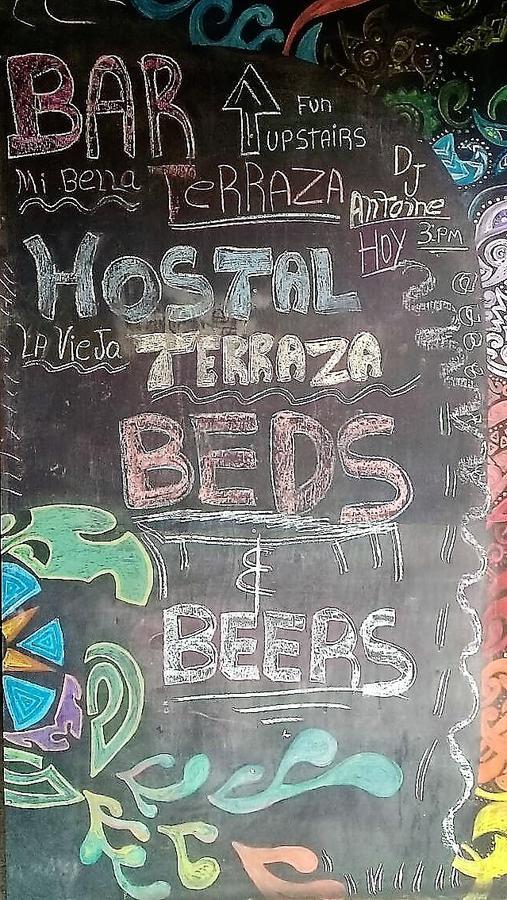 BAR
FUN
UPSTAIRS
Mi Bella
TeRRAZA
DJ
Antoine
HOY 3:PM
HOSTAL
LA VieJa
TERRAZA
BEDS
&
BEERS